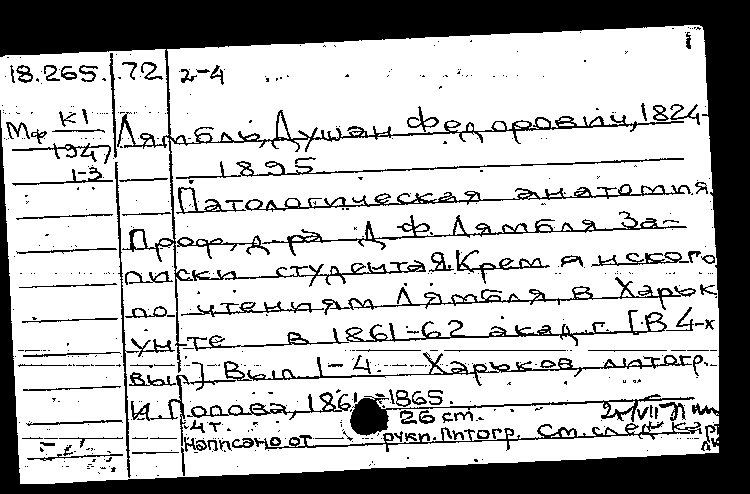 1
18.265. 72 2-4
Мф К1
1947
1-3
Лямбль, Душан Федорович, 1824-
1895
Патологическая анатомия
Проф., д-ра Д. Ф. Лямбля За-
писки студента Я. Кремянского
по чтениям Лямбля, в Харьк
ун-те в 1861-62 акад. г. [В 4-х
вып]. Вып 1-4. Харьков, литогр.
И. Попова, 1861-1865.
4 т. 26 см.
Написано от руки. Литогр. См. след карт